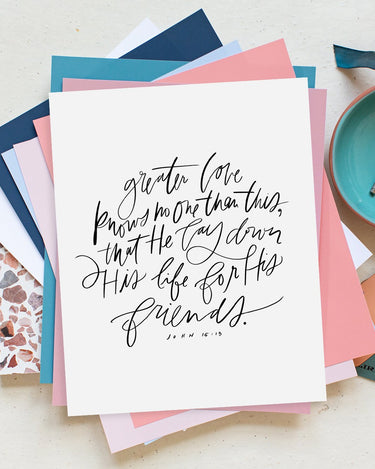 greater love
knows no one than this,
that He lay down
His life for His
friends.
JOHN 15:13